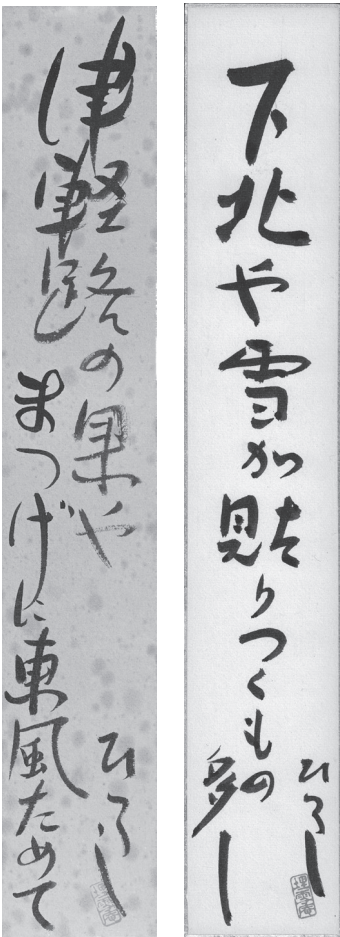 下北や雪が貼りつくもの
多し
ひろし
津軽路の果や
まつげに東風ためて
ひろし